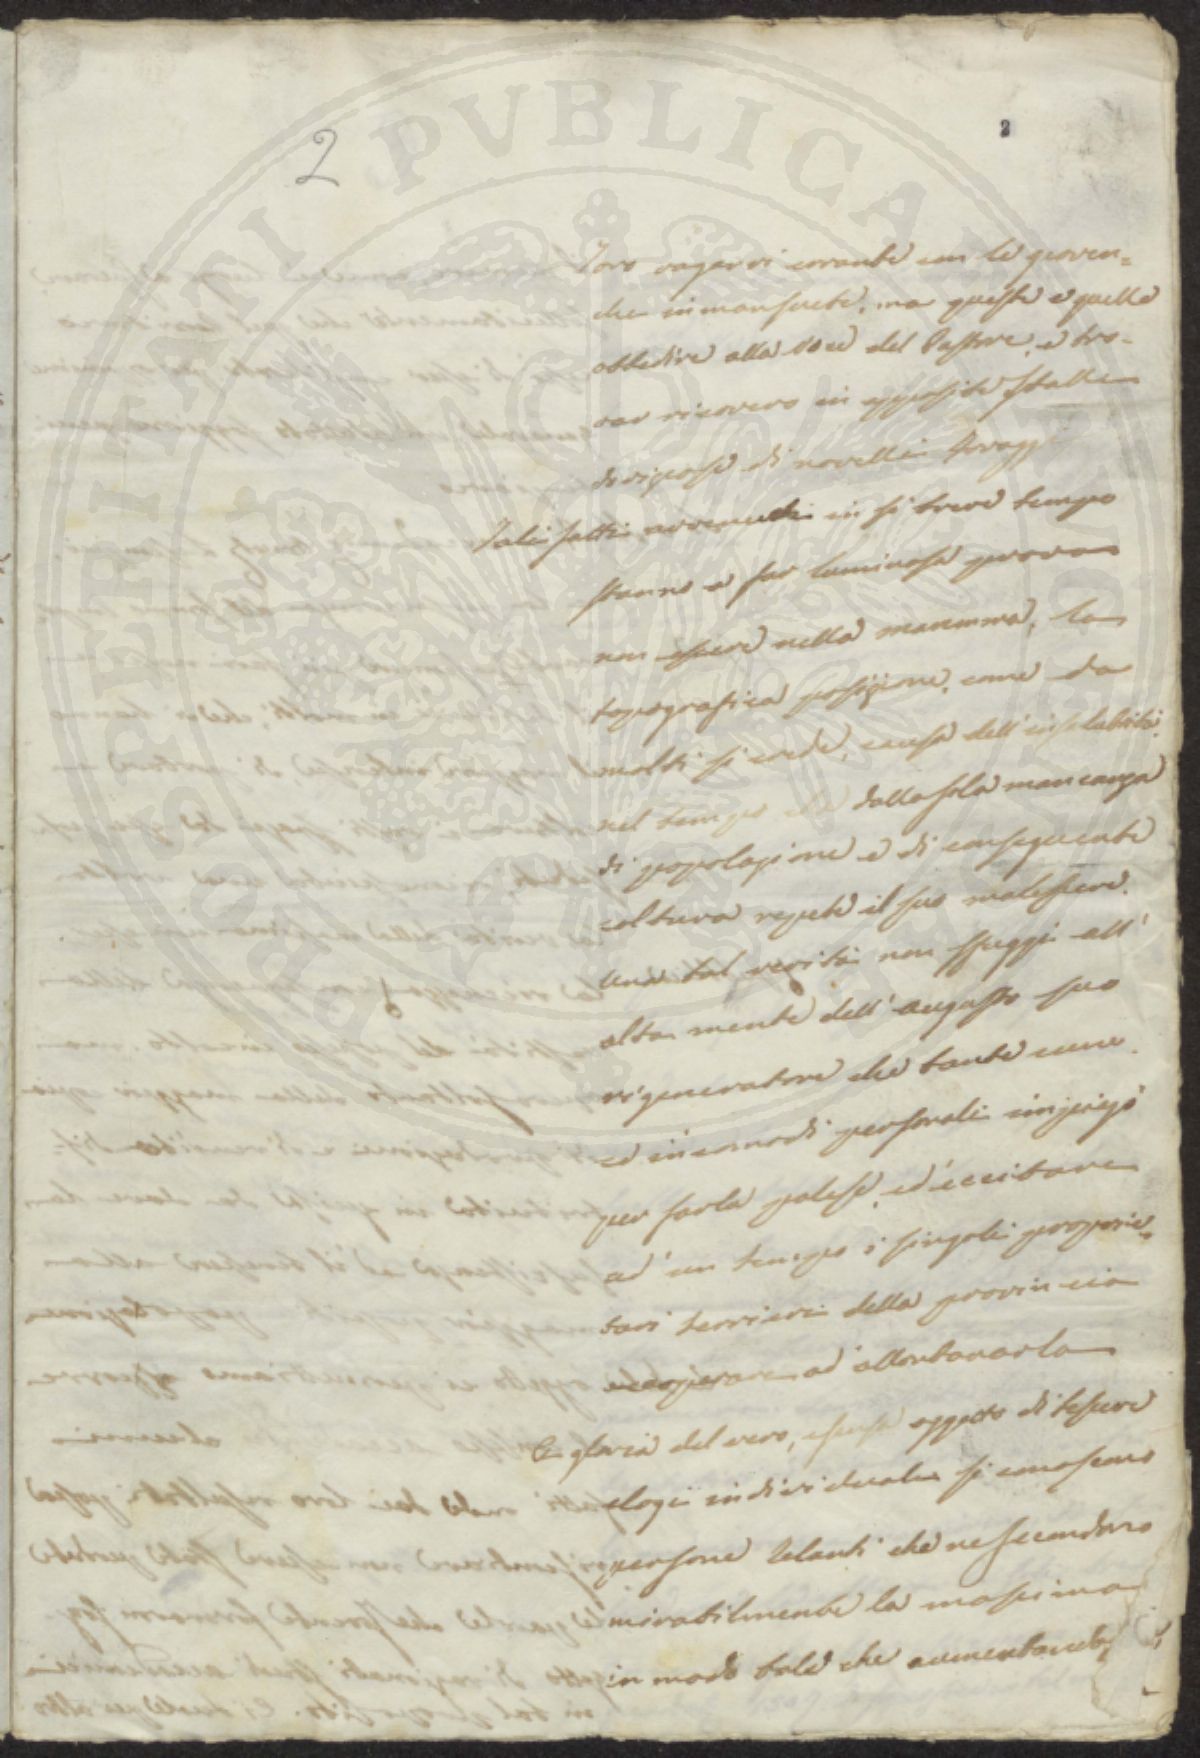 2
2
Toro vagarvi errante con le gioven=
che immansuete, ma queste e quello
obbedire alla voce del Pastore, e tro-
var ricovero in apposite stalle
di novelli foraggi
Tali fatti avvenuti in sì breve tempo
stanno a far luminosa prova
non essere nella maremma, la
topografica posizione, come da
molti si crede, causa dell'insalubrità,
nel tempo che dalla sola mancanza
di popolazione e di conseguente
coltura repete il suo malessere.
Una tal verità non sfuggì all'
alta mente dell'augusto suo
rigeneratore che tante cure
ed incomodi personali impiegò
per farla palese, ed eccitare
ad un tempo i singoli proprie=
tari terrieri della provincia
a cooperare ad allontanarla
A gloria del vero, senza oggetto di tessere
elogi individuali si conoscono
persone zelanti che ne secondaro
mirabilmente la massima
in modo tale che aumentando